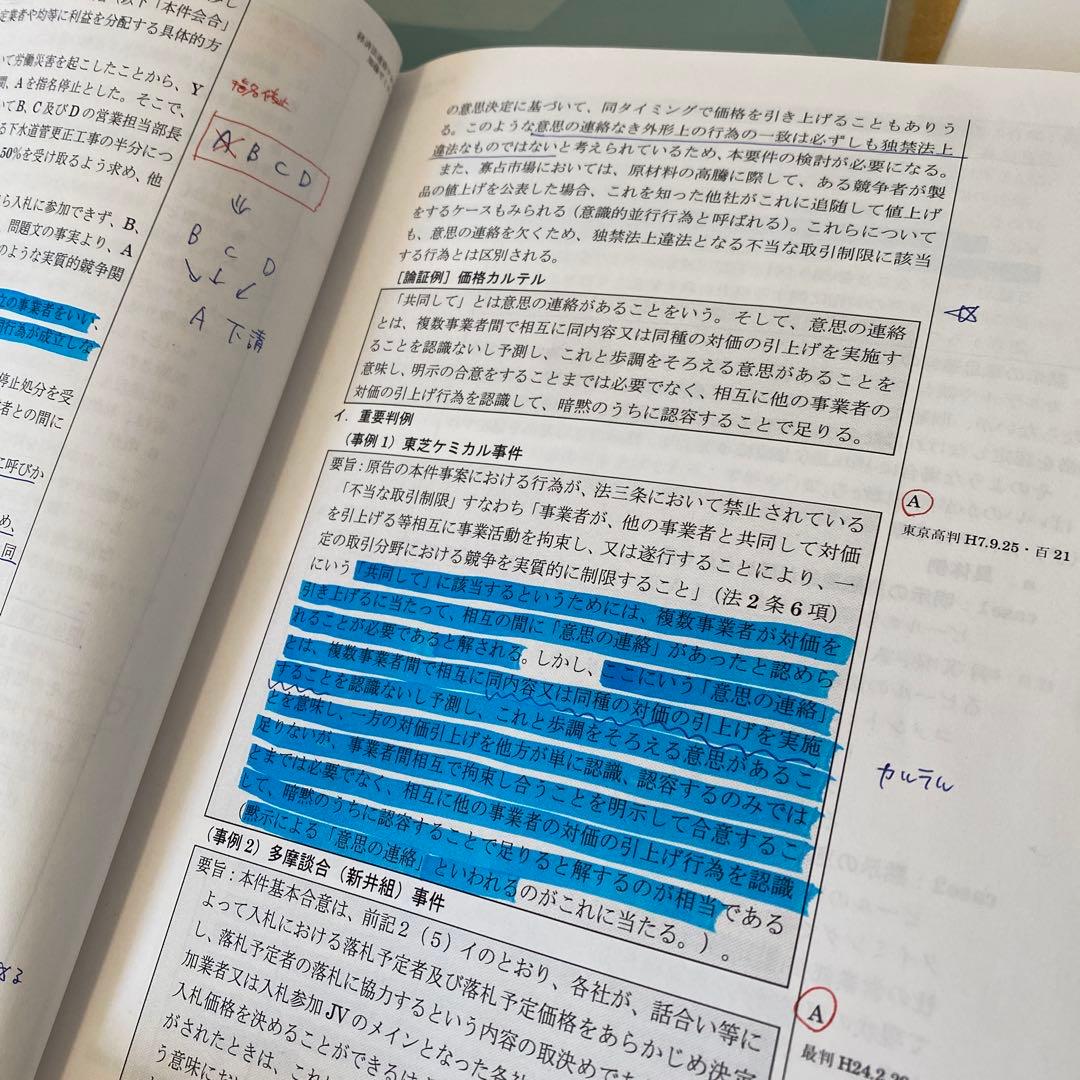 （以下「本件会合」
定業者や均等に利益を分配する具体的方
いて労働災害を起こしたことから、Y
間、Aを指名停止とした。そこで、
いてB、C及びDの営業担当部長
る下水道管更正工事の半分につ
50%を受け取るよう求め、他
ら入札に参加できず、B、
問題文の事実より、A
のような実質的競争関
立の事業者をいい、
同行為が成立しな
停止処分を受
者との間に
に呼びか
め、
同
指名停止
A B C D
B C D
A 下請
の意思決定に基づいて、同タイミングで価格を引き上げることもありう
る。このような意思の連絡なき外形上の行為の一致は必ずしも独禁法上
違法なものではないと考えられているため、本要件の検討が必要になる。
また、寡占市場においては、原材料の高騰に際して、ある競争者が製
品の値上げを公表した場合、これを知った他社がこれに追随して値上げ
をするケースもみられる（意識的並行行為と呼ばれる）。これらについて
も、意思の連絡を欠くため、独禁法上違法となる不当な取引制限に該当
する行為とは区別される。
［論証例］価格カルテル
「共同して」とは意思の連絡があることをいう。そして、意思の連絡
とは、複数事業者間で相互に同内容又は同種の対価の引上げを実施す
ることを認識ないし予測し、これと歩調をそろえる意思があることを
意味し、明示の合意をすることまでは必要でなく、相互に他の事業者の
対価の引上げ行為を認識して、暗黙のうちに認容することで足りる。
イ．重要判例
（事例1）東芝ケミカル事件
要旨：原告の本件事案における行為が、法三条において禁止されている
「不当な取引制限」すなわち「事業者が、他の事業者と共同して対価
を引き上げる等相互に事業活動を拘束し、又は遂行することにより、一
定の取引分野における競争を実質的に制限すること」（法2条6項）
にいう「共同して」に該当するというためには、複数事業者が対価を
引き上げるに当たって、相互の間に「意思の連絡」があったと認めら
れることが必要であると解される。しかし、ここにいう「意思の連絡」
とは、複数事業者間で相互に同内容又は同種の対価の引上げを実施
することを認識ないし予測し、これと歩調をそろえる意思があるこ
とを意味し、一方の対価引上げを他方が単に認識、認容するのみでは
足りないが、事業者間相互で拘束し合うことを明示して合意するこ
とまでは必要でなく、相互に他の事業者の対価の引上げ行為を認識
して、暗黙のうちに認容することで足りると解するのが相当である
（黙示による「意思の連絡」といわれるのがこれに当たる。）。
A
東京高判H7.9.25・百21
カルテル
（事例2）多摩談合（新井組）事件
要旨：本件基本合意は、前記2（5）イのとおり、各社が、話合い等に
よって入札における落札予定者及び落札予定価格をあらかじめ決定
し、落札予定者の落札に協力するという内容の取決めで
加業者又は入札参加JVのメインとなった各社
入札価格を決めることができるは
がされたときは、これ
う意味にお
A
最判H24.2.20